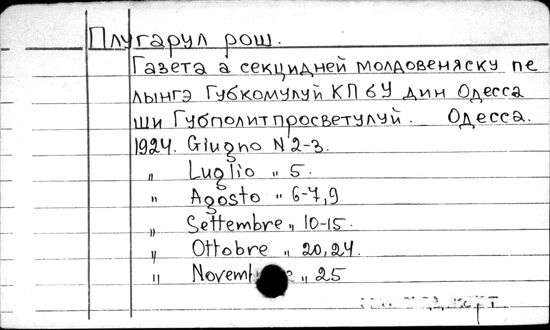 Плугарул рош.
Газета а секцидней молдовеняску пе
лынгэ Губкомулуй КПбУ дин Одесса
ши Губполитпросветулуй. Одесса.
1924. Giugno N 2-3.
" Luglio " 5.
" Agosto " 6-7,9
" Settembre " 10-15.
" Ottobre " 20,24.
" Novembre " 25